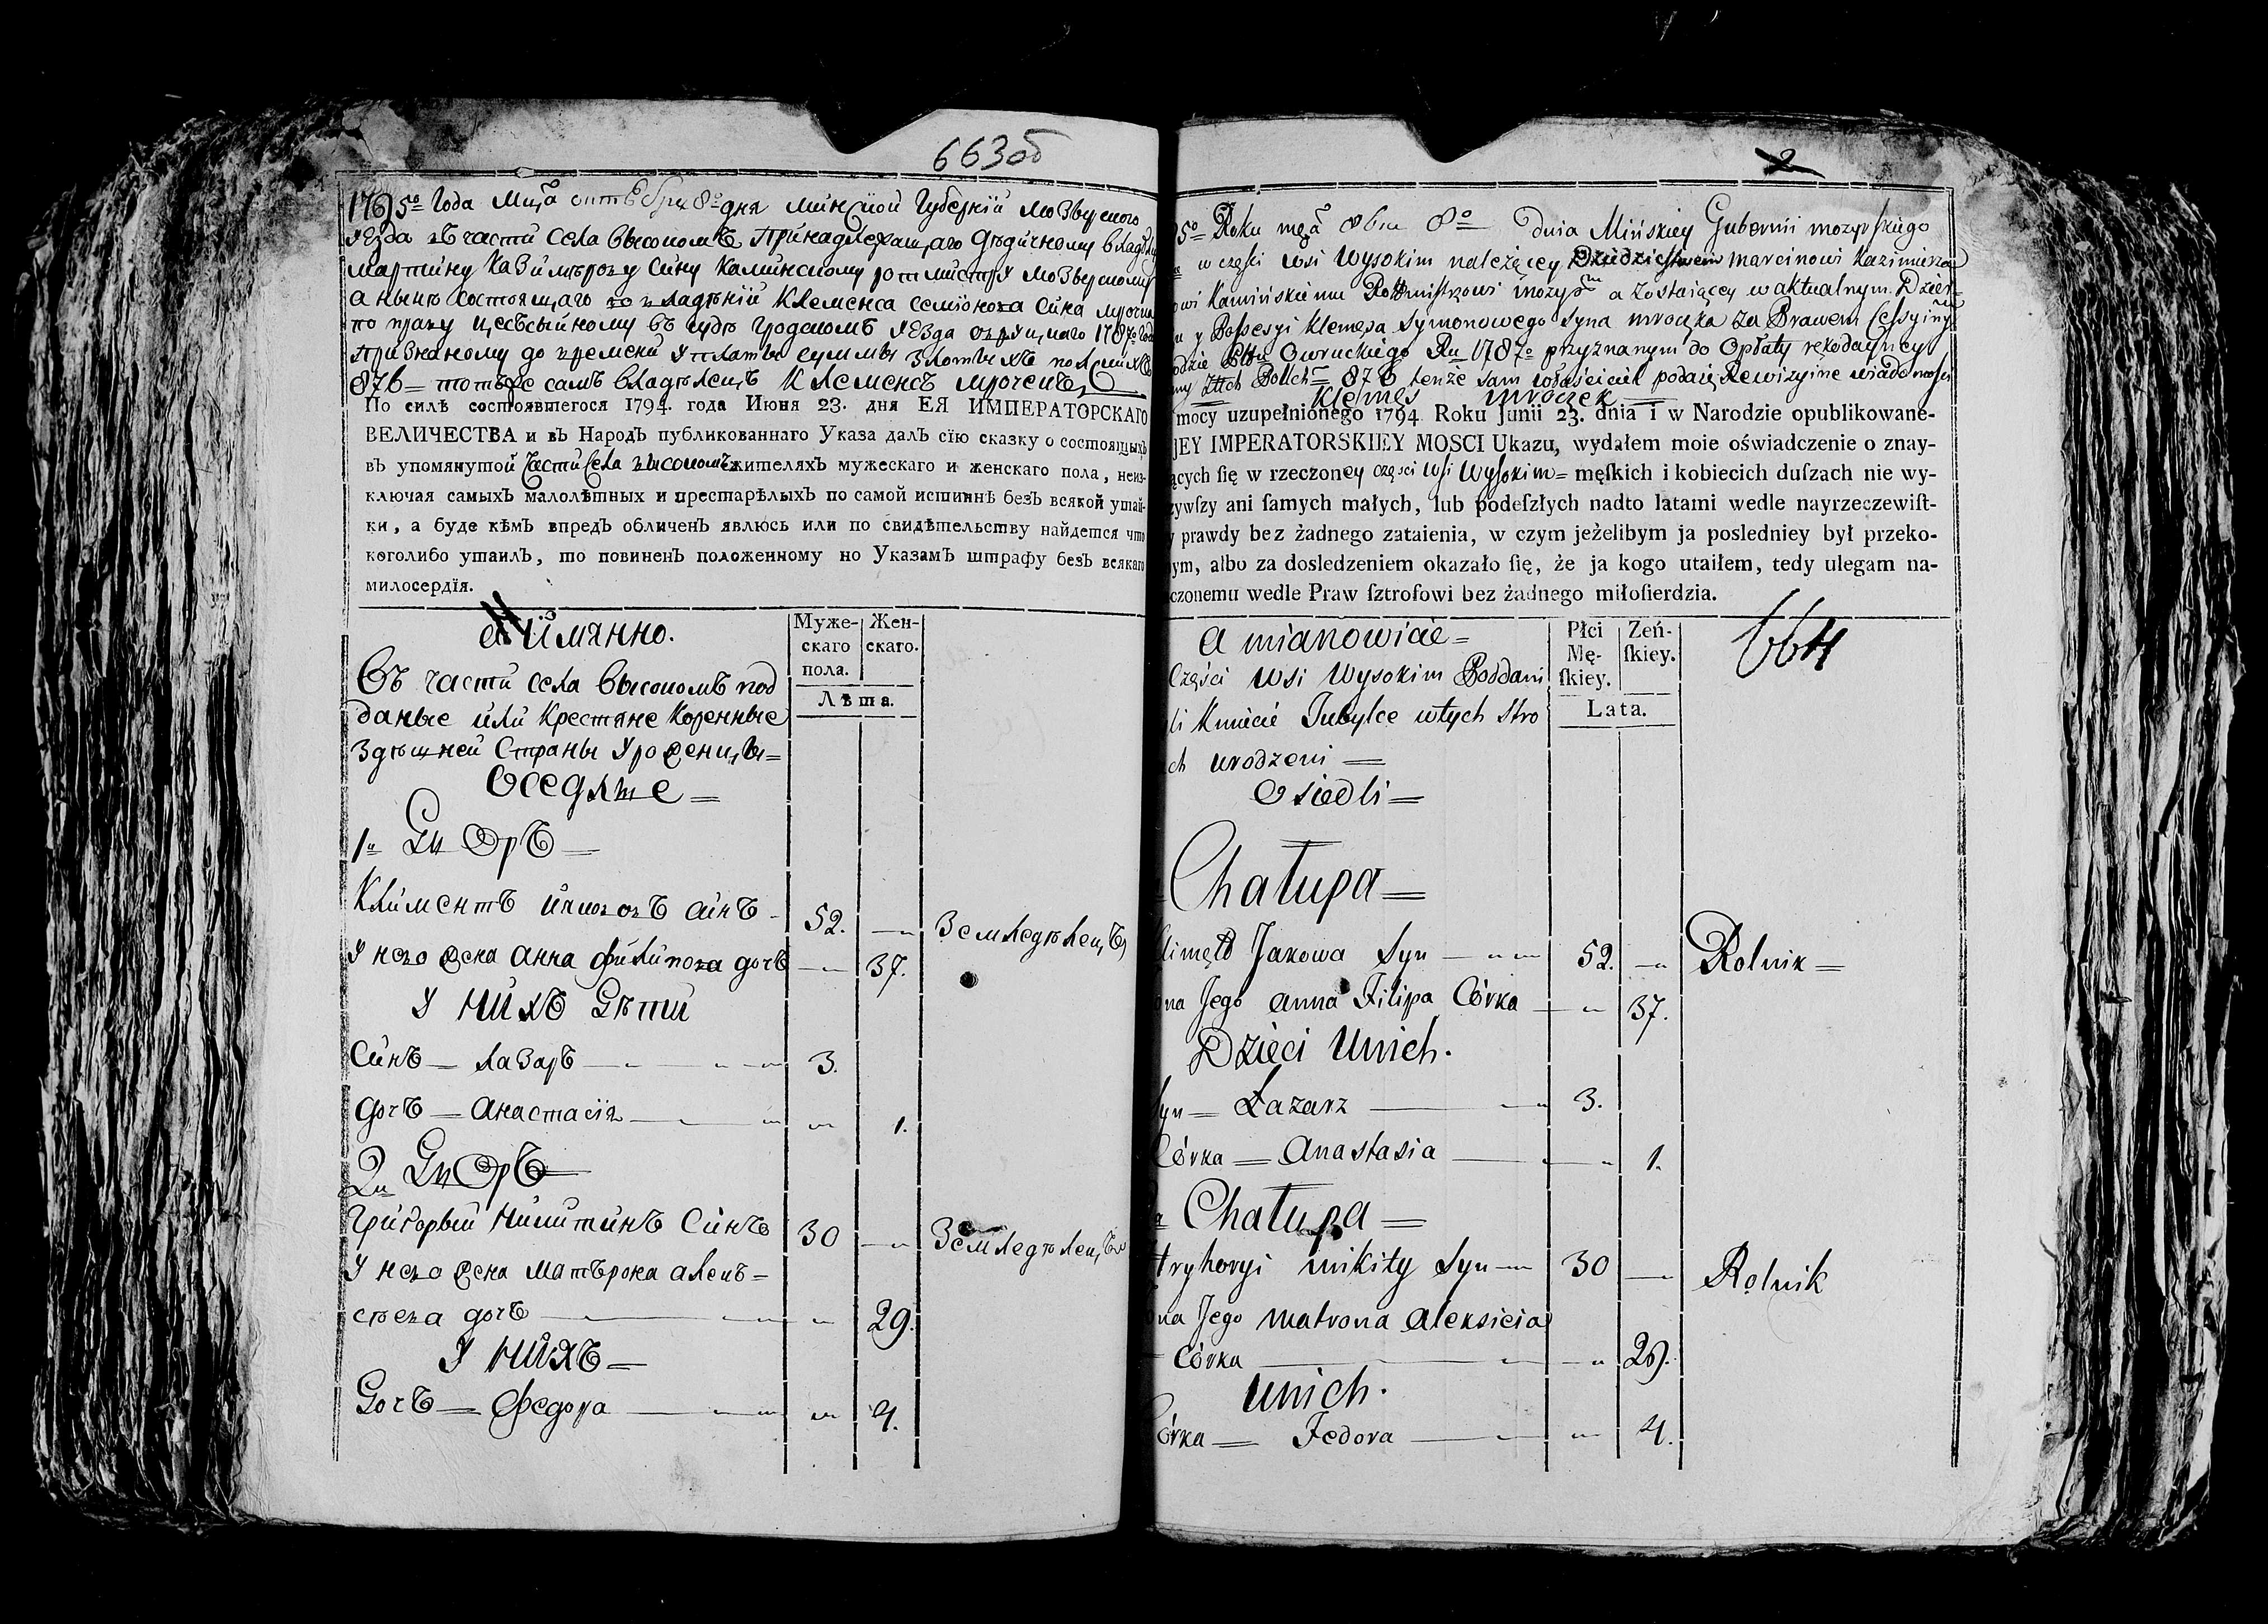 663об
1795го Года Мца октебря 8го дня минской Губернии мозырского
уезда въ части села высокомъ принадлежащаго дедичному владелцу
мартину казимерову сину каминскому ротмистру мозырскому
а нынъ состоящаго во владънии Клеменса семионова сина мрочка
по праву цессыйному въ суде гродскомъ уезда овруцкаго 1787го года
признаному до времени уплаты суммы злотыхъ полскихъ
876 = тотъже самъ владълецъ Клеменсъ мроченъ
По силѣ состоявшегося 1794. года Июня 23. дня ЕЯ ИМПЕРАТОРСКАГО
ВЕЛИЧЕСТВА и въ Народъ публикованнаго Указа далъ сїю сказку о состоящыхъ
въ упомянутой части села высокомъ жителяхъ мужескаго и женскаго пола, неиз-
ключая самыхъ малолѣтных и престарѣлыхъ по самой истиннѣ безъ всякой утай-
ки, а буде кѣмъ впредъ обличенъ явлюсь или по свидѣтельству найдется что
коголибо утаилъ, то повиненъ положенному но Указамъ штрафу безъ всякаго
милосердїя.
а имянно.
Муже-скаго пола. Жен-скаго.
Лѣта.
Въ части села высокомъ под
даные или Крестяне Коренные
Здѣшней Страны Уроженцы =
Оседлые =
1й Дворъ
Климентъ яковovъ синъ 52. Земледѣлецъ
У него жена Анна филипова дочъ 37.
У нихъ Дѣти
Синъ = лазаръ 3.
дочъ = Анастасїя 1.
2й Дворъ
Григорый Никитинъ Синъ 30 Земледѣлецъ
У него жена матърона алекъ=
сѣева дочъ 29.
У нихъ =
Дочъ = Федора 4.
2
5go Roku mca 8bra 8o dnia Mińskiey Gubernii mozyrskiego
w części wsi Wysokim należącey Dziedzictwem marcinowi Kazimierza
owi Kamińskiemu Rottmistrzowi mozyrmu a zostaiącey w aktualnym Dzier=
u y Possesyi Klemęsa Symonowego syna mroczka za Prawem Cessyinym
odzie Pttu Owruckiego Ru 1787o przyznanym do Opłaty rękodayncy
my złtch Pollch 876 tenże sam właściciel podaię Rewizyine wiadomości
Klemęs mroczek
mocy uzupełnionego 1794 Roku Junii 23. dnia i w Narodzie opublikowane-
JEY IMPERATORSKIEY MOSCI Ukazu, wydałem moie oświadczenie o znay-
ących ſię w rzeczoney części wsi Wysokim = męſkich i kobiecich duſzach nie wy-
zywſzy ani ſamych małych, lub podeſzłych nadto latami wedle nayrzeczewiſt-
y prawdy bez żadnego zataienia, w czym jeżelibym ja posledniey był przeko-
ym, albo za dosledzeniem okazało ſię, że ja kogo utaiłem, tedy ulegam na-
czonemu wedle Praw ſztrofowi bez żadnego miłoſierdzia.
a mianowicie =
Płci Mę-ſkiey. Zeń-ſkiey.
Lata.
664
Części Wsi Wysokim Poddani
li Kmiecie Tubylce w tych stro
ch urodzeni
Osiedli =
Chałupa =
limęt Jakowa Syn 52. Rolnik =
ona Jego Anna Filipa Córka 37.
Dzieci Unich.
Syn = Łazarz 3.
Córka = Anastasia 1.
Chałupa =
Hryhoryi mikity Syn 30 Rolnik
ona Jego Matrona Aleksieia
Córka 29.
Unich.
órka = Fedora 4.